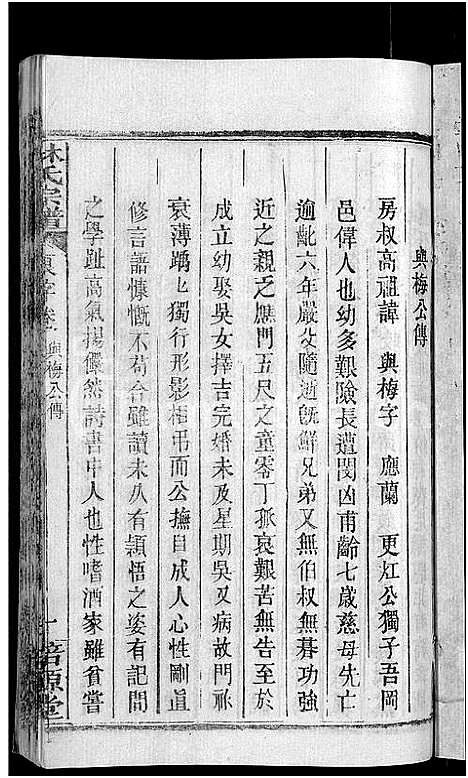 興梅公傳
房叔高祖諱 興梅字 應蘭 更炡公獨子吾岡
邑偉人也幼多艱險長遭閔凶甫齡七歲慈母先亡
逾齔六年嚴父隨逝旣鮮兄弟又無伯叔無碁功強
近之親之應門五尺之童零丁孤哀艱苦無告至於
成立幼娶吳女擇吉完婚未及星期吳又病故門祚
衰薄踽匕獨行形影相弔而公撫自成人心性剛直
修言語慷慨不苟合雖讀未久有頴悟之姿有記問
之學趾高氣揚儼然詩書中人也性嗜酒家雖貧嘗
林氏宗譜
卷 興梅公傳
一